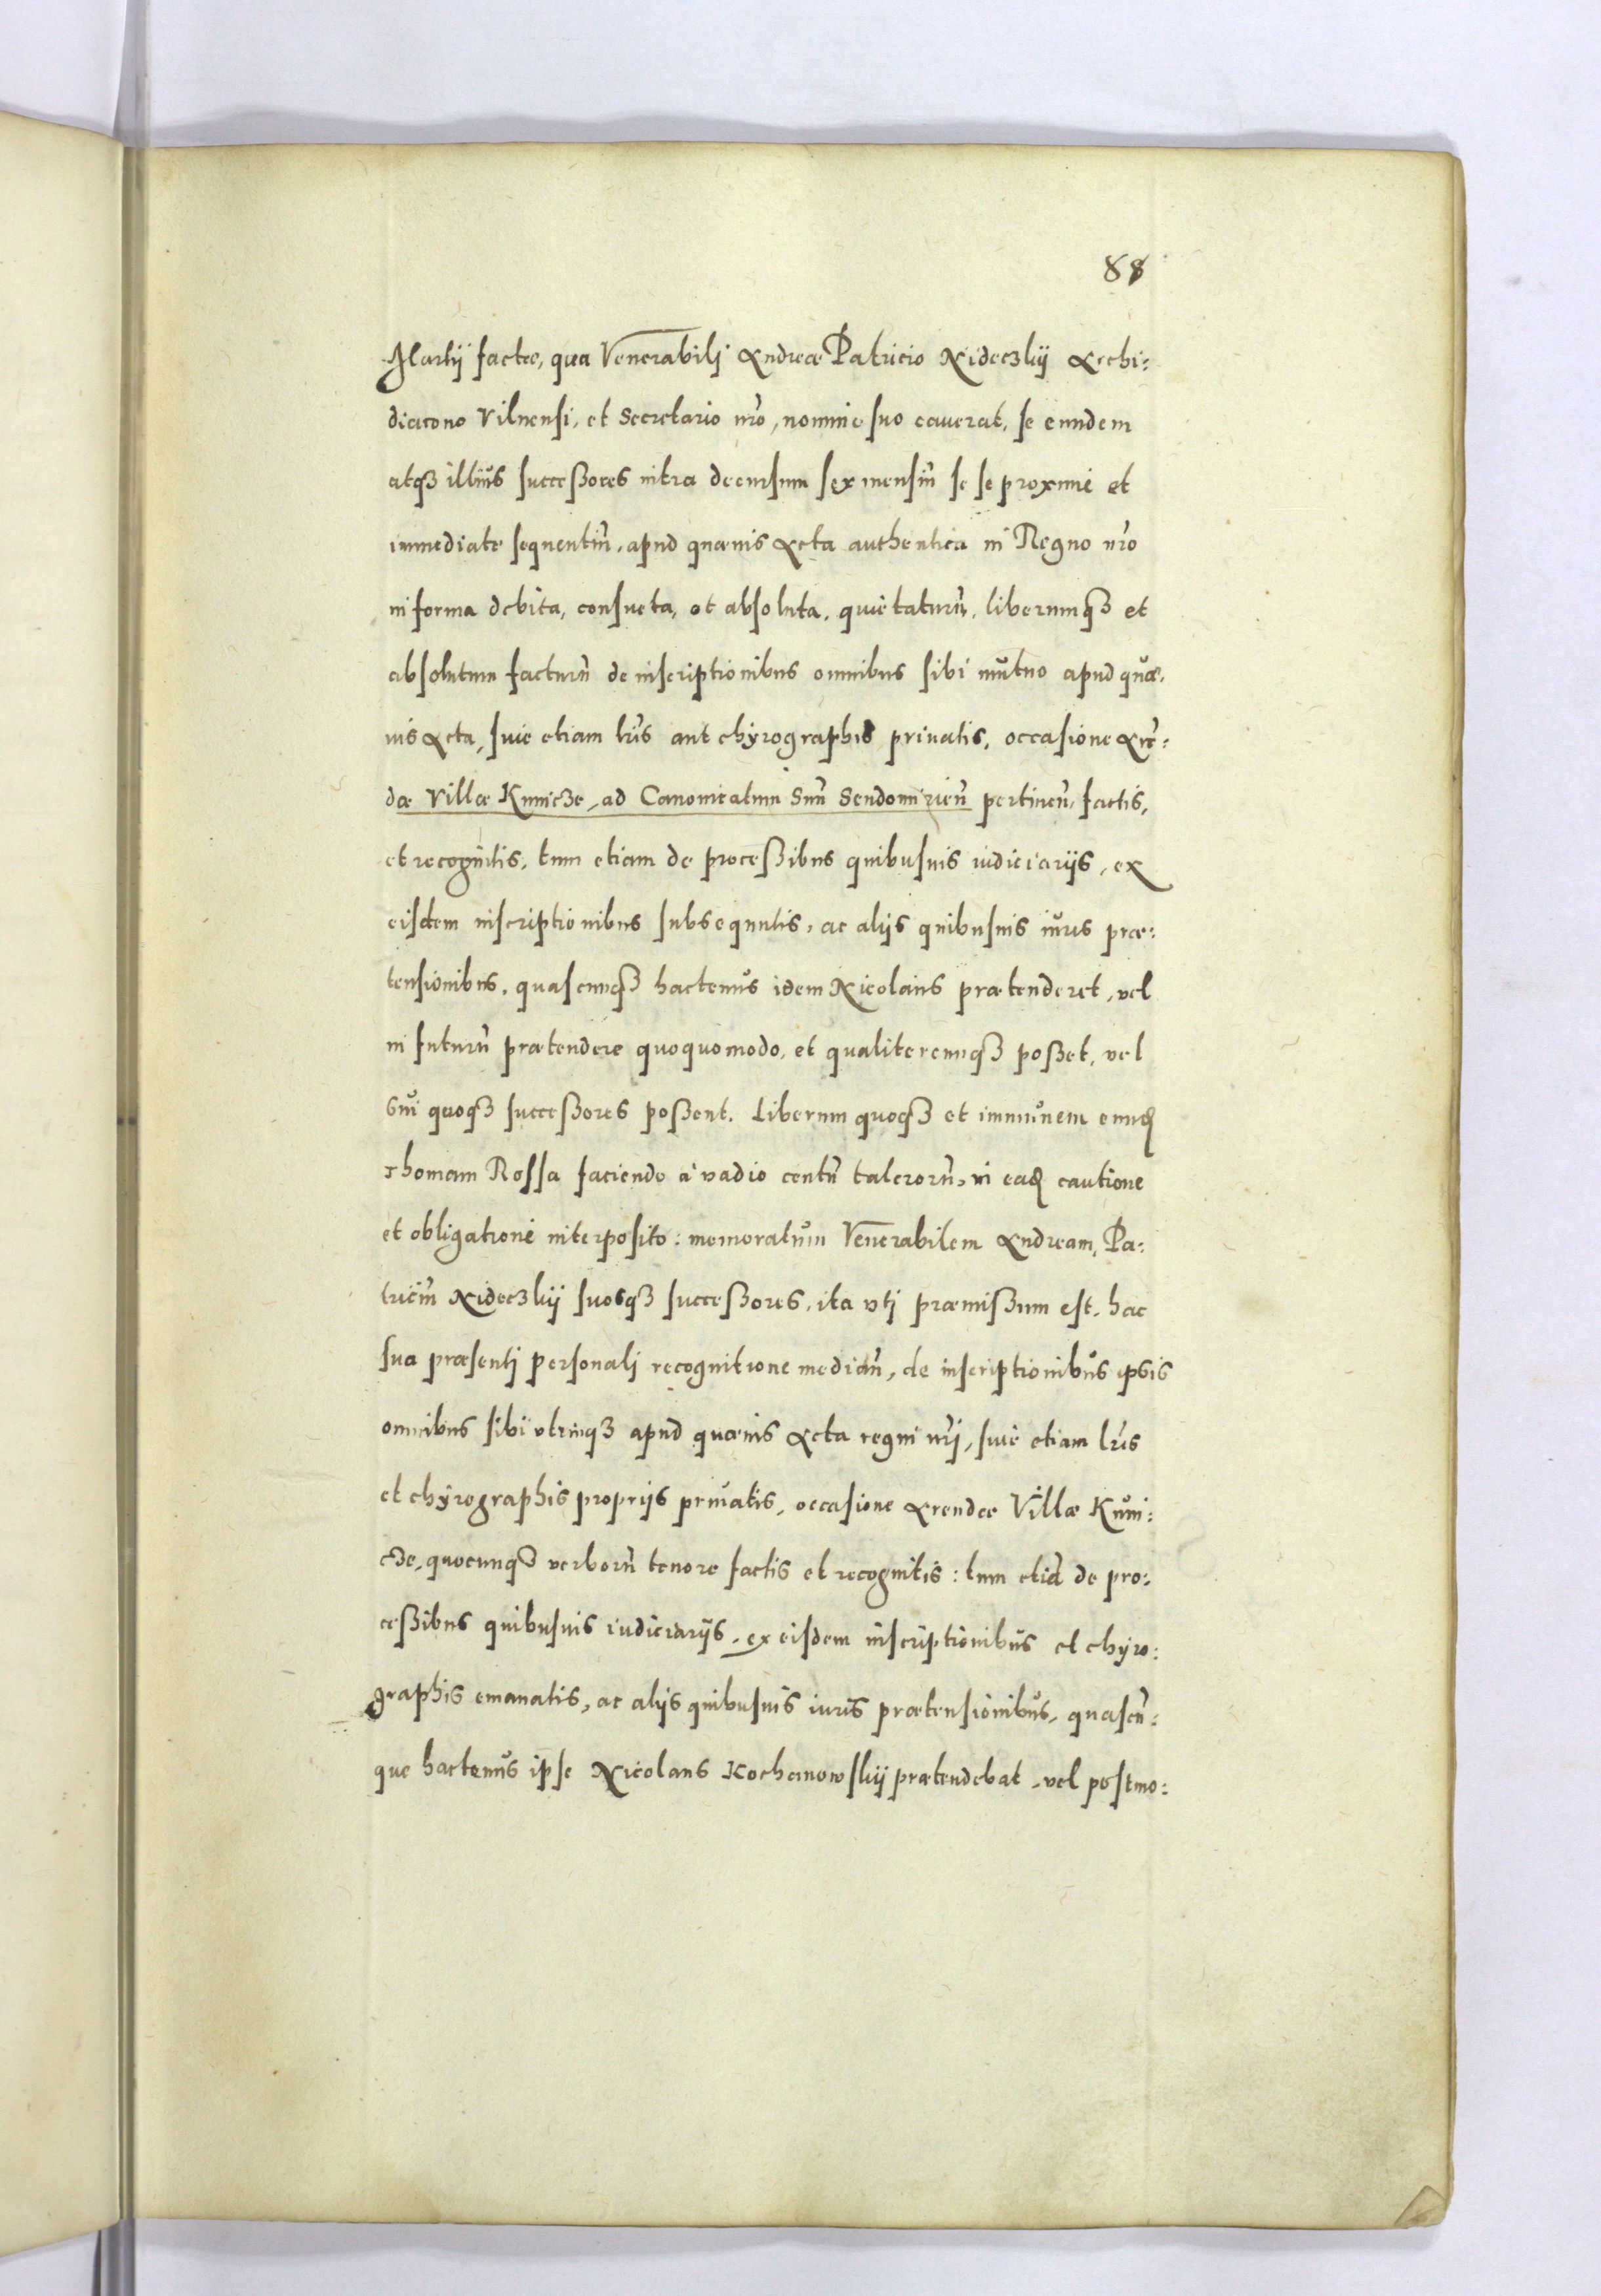 88
Martij factæ, qua Venerabilj Andreæ Patricio Nideczkij Archi:
diacono Vilnensi, et Secretario nr̃o, nomine suo cauerat, se eundem
atq̃ꝫ illius successores intra decursum sex mensiũ se se proxime et
immediate sequentiũ, apud quæuis Acta authentica in Regno nr̃o
in forma debita, consueta, et absoluta, quietaturũ, liberumq̃ꝫ et
absolutum facturũ de inscriptionibus omnibus sibi mutuo apud quæ:
uis Acta, siue etiam lr̃is aut chyrographis priuatis, occasione Arẽ:
dæ Villæ Kunicze, ad Canonicatum Suũ Sendomirieñ pertineñ, factis,
et recognitis, tum etiam de processibus quibusuis iudiciarijs, ex
eisdem inscriptionibus subsequutis, ac alijs quibusuis iuris præ:
tensionibus, quascunq̃ꝫ hactenus idem Nicolaus prætenderet, vel
in futurũ prætendere quoquomodo, et qualitercunq̃ꝫ posset, vel
Sui quoq̃ꝫ successores possent. Liberum quoq̃ꝫ et immunem eundẽ
Thomam Rossa faciendo à vadio centũ talerorũ, in eadẽ cautione
et obligatione interposito: memoratum Venerabilem Andream, Pa:
triciũ Nideczkij suosq̃ꝫ successores, ita vti præmissum est, hac
sua præsentj personalj recognitione mediañ, de inscriptionibus ipsis
omnibus sibi vtrinq̃ꝫ apud quæuis Acta regni nr̃j, siue etiam lr̃is
et chyrographis proprijs priuatis, occasione Arendæ Villæ Kuni:
cze, quocunq̃ꝫ verborũ tenore factis et recognitis: tum etiã de pro:
cessibus quibusuis iudiciarijs, ex eisdem inscriptionibus et chyro:
graphis emanatis, ac alijs quibusuis iuris prætensionibus, quascũ:
que hactenus ipse Nicolaus Kochanowskij prætendebat, vel postmo: